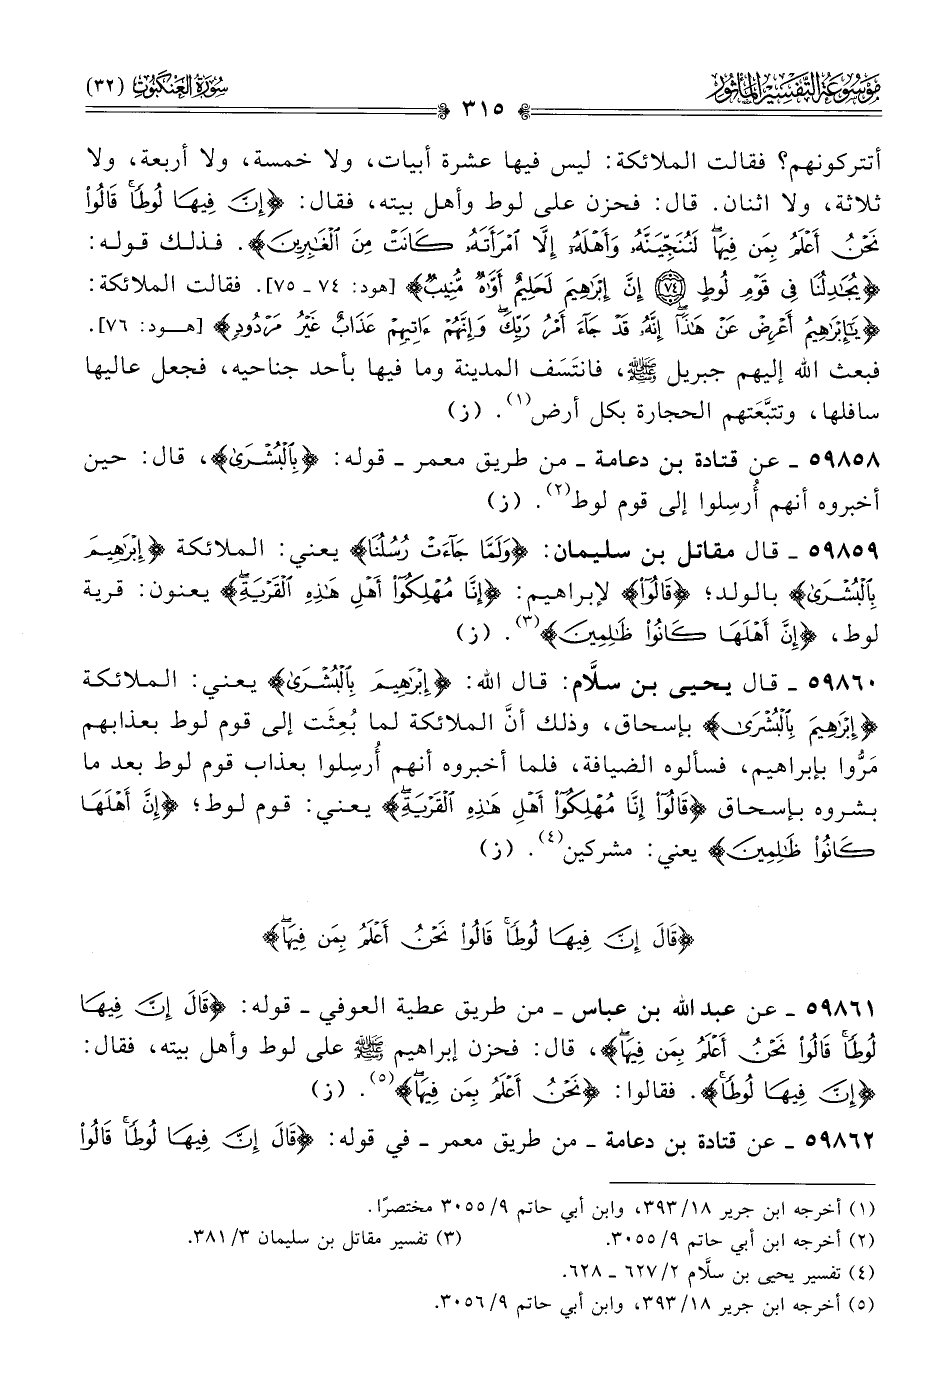 موسوعة التفسير المأثور
سورة العنكبوت (٣٢)
٣١٥
أتتركونهم؟ فقالت الملائكة: ليس فيها عشرة أبيات، ولا خمسة، ولا أربعة، ولا
ثلاثة، ولا اثنان. قال: فحزن على لوط وأهل بيته، فقال: ﴿إِنَّ فِيهَا لُوطًاۚ قَالُوا۟
نَحْنُ أَعْلَمُ بِمَن فِيهَاۖ لَنُنَجِّيَنَّهُۥ وَأَهْلَهُۥٓ إِلَّا ٱمْرَأَتَهُۥ كَانَتْ مِنَ ٱلْغَٰبِرِينَ﴾. فذلك قوله:
﴿يُجَٰدِلُنَا فِى قَوْمِ لُوطٍ ٧٤ إِنَّ إِبْرَٰهِيمَ لَحَلِيمٌ أَوَّٰهٌ مُّنِيبٌ﴾ [هود: ٧٤ ـ ٧٥]. فقالت الملائكة:
﴿يَٰٓإِبْرَٰهِيمُ أَعْرِضْ عَنْ هَٰذَآۖ إِنَّهُۥ قَدْ جَآءَ أَمْرُ رَبِّكَۖ وَإِنَّهُمْ ءَاتِيهِمْ عَذَابٌ غَيْرُ مَرْدُودٍ﴾ [هـود: ٧٦].
فبعث الله إليهم جبريل ﷺ، فانتَسَف المدينة وما فيها بأحد جناحيه، فجعل عاليها
سافلها، وتتبَّعَتهم الحجارة بكل أرض(١). (ز)
٥٩٨٥٨ ـ عن قتادة بن دعامة ـ من طريق معمر ـ قوله: ﴿بِٱلْبُشْرَىٰ﴾، قال: حين
أخبروه أنهم أُرسِلوا إلى قوم لوط(٢). (ز)
٥٩٨٥٩ ـ قال مقاتل بن سليمان: ﴿وَلَمَّا جَآءَتْ رُسُلُنَآ﴾ يعني: الملائكة ﴿إِبْرَٰهِيمَ
بِٱلْبُشْرَىٰ﴾ بالولد؛ ﴿قَالُوٓا۟﴾ لإبراهيم: ﴿إِنَّا مُهْلِكُوٓا۟ أَهْلِ هَٰذِهِ ٱلْقَرْيَةِۖ﴾ يعنون: قرية
لوط، ﴿إِنَّ أَهْلَهَا كَانُوا۟ ظَٰلِمِينَ﴾(٣). (ز)
٥٩٨٦٠ ـ قال يحيى بن سلَّام: قال الله: ﴿إِبْرَٰهِيمَ بِٱلْبُشْرَىٰ﴾ يعني: الملائكة
﴿إِبْرَٰهِيمَ بِٱلْبُشْرَىٰ﴾ بإسحاق، وذلك أنَّ الملائكة لما بُعِثَت إلى قوم لوط بعذابهم
مَرُّوا بإبراهيم، فسألوه الضيافة، فلما أخبروه أنهم أُرسِلوا بعذاب قوم لوط بعد ما
بشروه بإسحاق ﴿قَالُوٓا۟ إِنَّا مُهْلِكُوٓا۟ أَهْلِ هَٰذِهِ ٱلْقَرْيَةِۖ﴾ يعني: قوم لوط؛ ﴿إِنَّ أَهْلَهَا
كَانُوا۟ ظَٰلِمِينَ﴾ يعني: مشركين(٤). (ز)
﴿قَالَ إِنَّ فِيهَا لُوطًاۚ قَالُوا۟ نَحْنُ أَعْلَمُ بِمَن فِيهَاۖ﴾
٥٩٨٦١ ـ عن عبدالله بن عباس ـ من طريق عطية العوفي ـ قوله: ﴿قَالَ إِنَّ فِيهَا
لُوطًاۚ قَالُوا۟ نَحْنُ أَعْلَمُ بِمَن فِيهَاۖ﴾، قال: فحزن إبراهيم ﷺ على لوط وأهل بيته، فقال:
﴿إِنَّ فِيهَا لُوطًاۚ﴾. فقالوا: ﴿نَحْنُ أَعْلَمُ بِمَن فِيهَاۖ﴾(٥). (ز)
٥٩٨٦٢ ـ عن قتادة بن دعامة ـ من طريق معمر ـ في قوله: ﴿قَالَ إِنَّ فِيهَا لُوطًاۚ قَالُوا۟
(١) أخرجه ابن جرير ١٨/ ٣٩٣، وابن أبي حاتم ٩/ ٣٠٥٥ مختصرًا.
(٢) أخرجه ابن أبي حاتم ٩/ ٣٠٥٥. (٣) تفسير مقاتل بن سليمان ٣/ ٣٨١.
(٤) تفسير يحيى بن سلَّام ٢/ ٦٢٧ ـ ٦٢٨.
(٥) أخرجه ابن جرير ١٨/ ٣٩٣، وابن أبي حاتم ٩/ ٣٠٥٦.